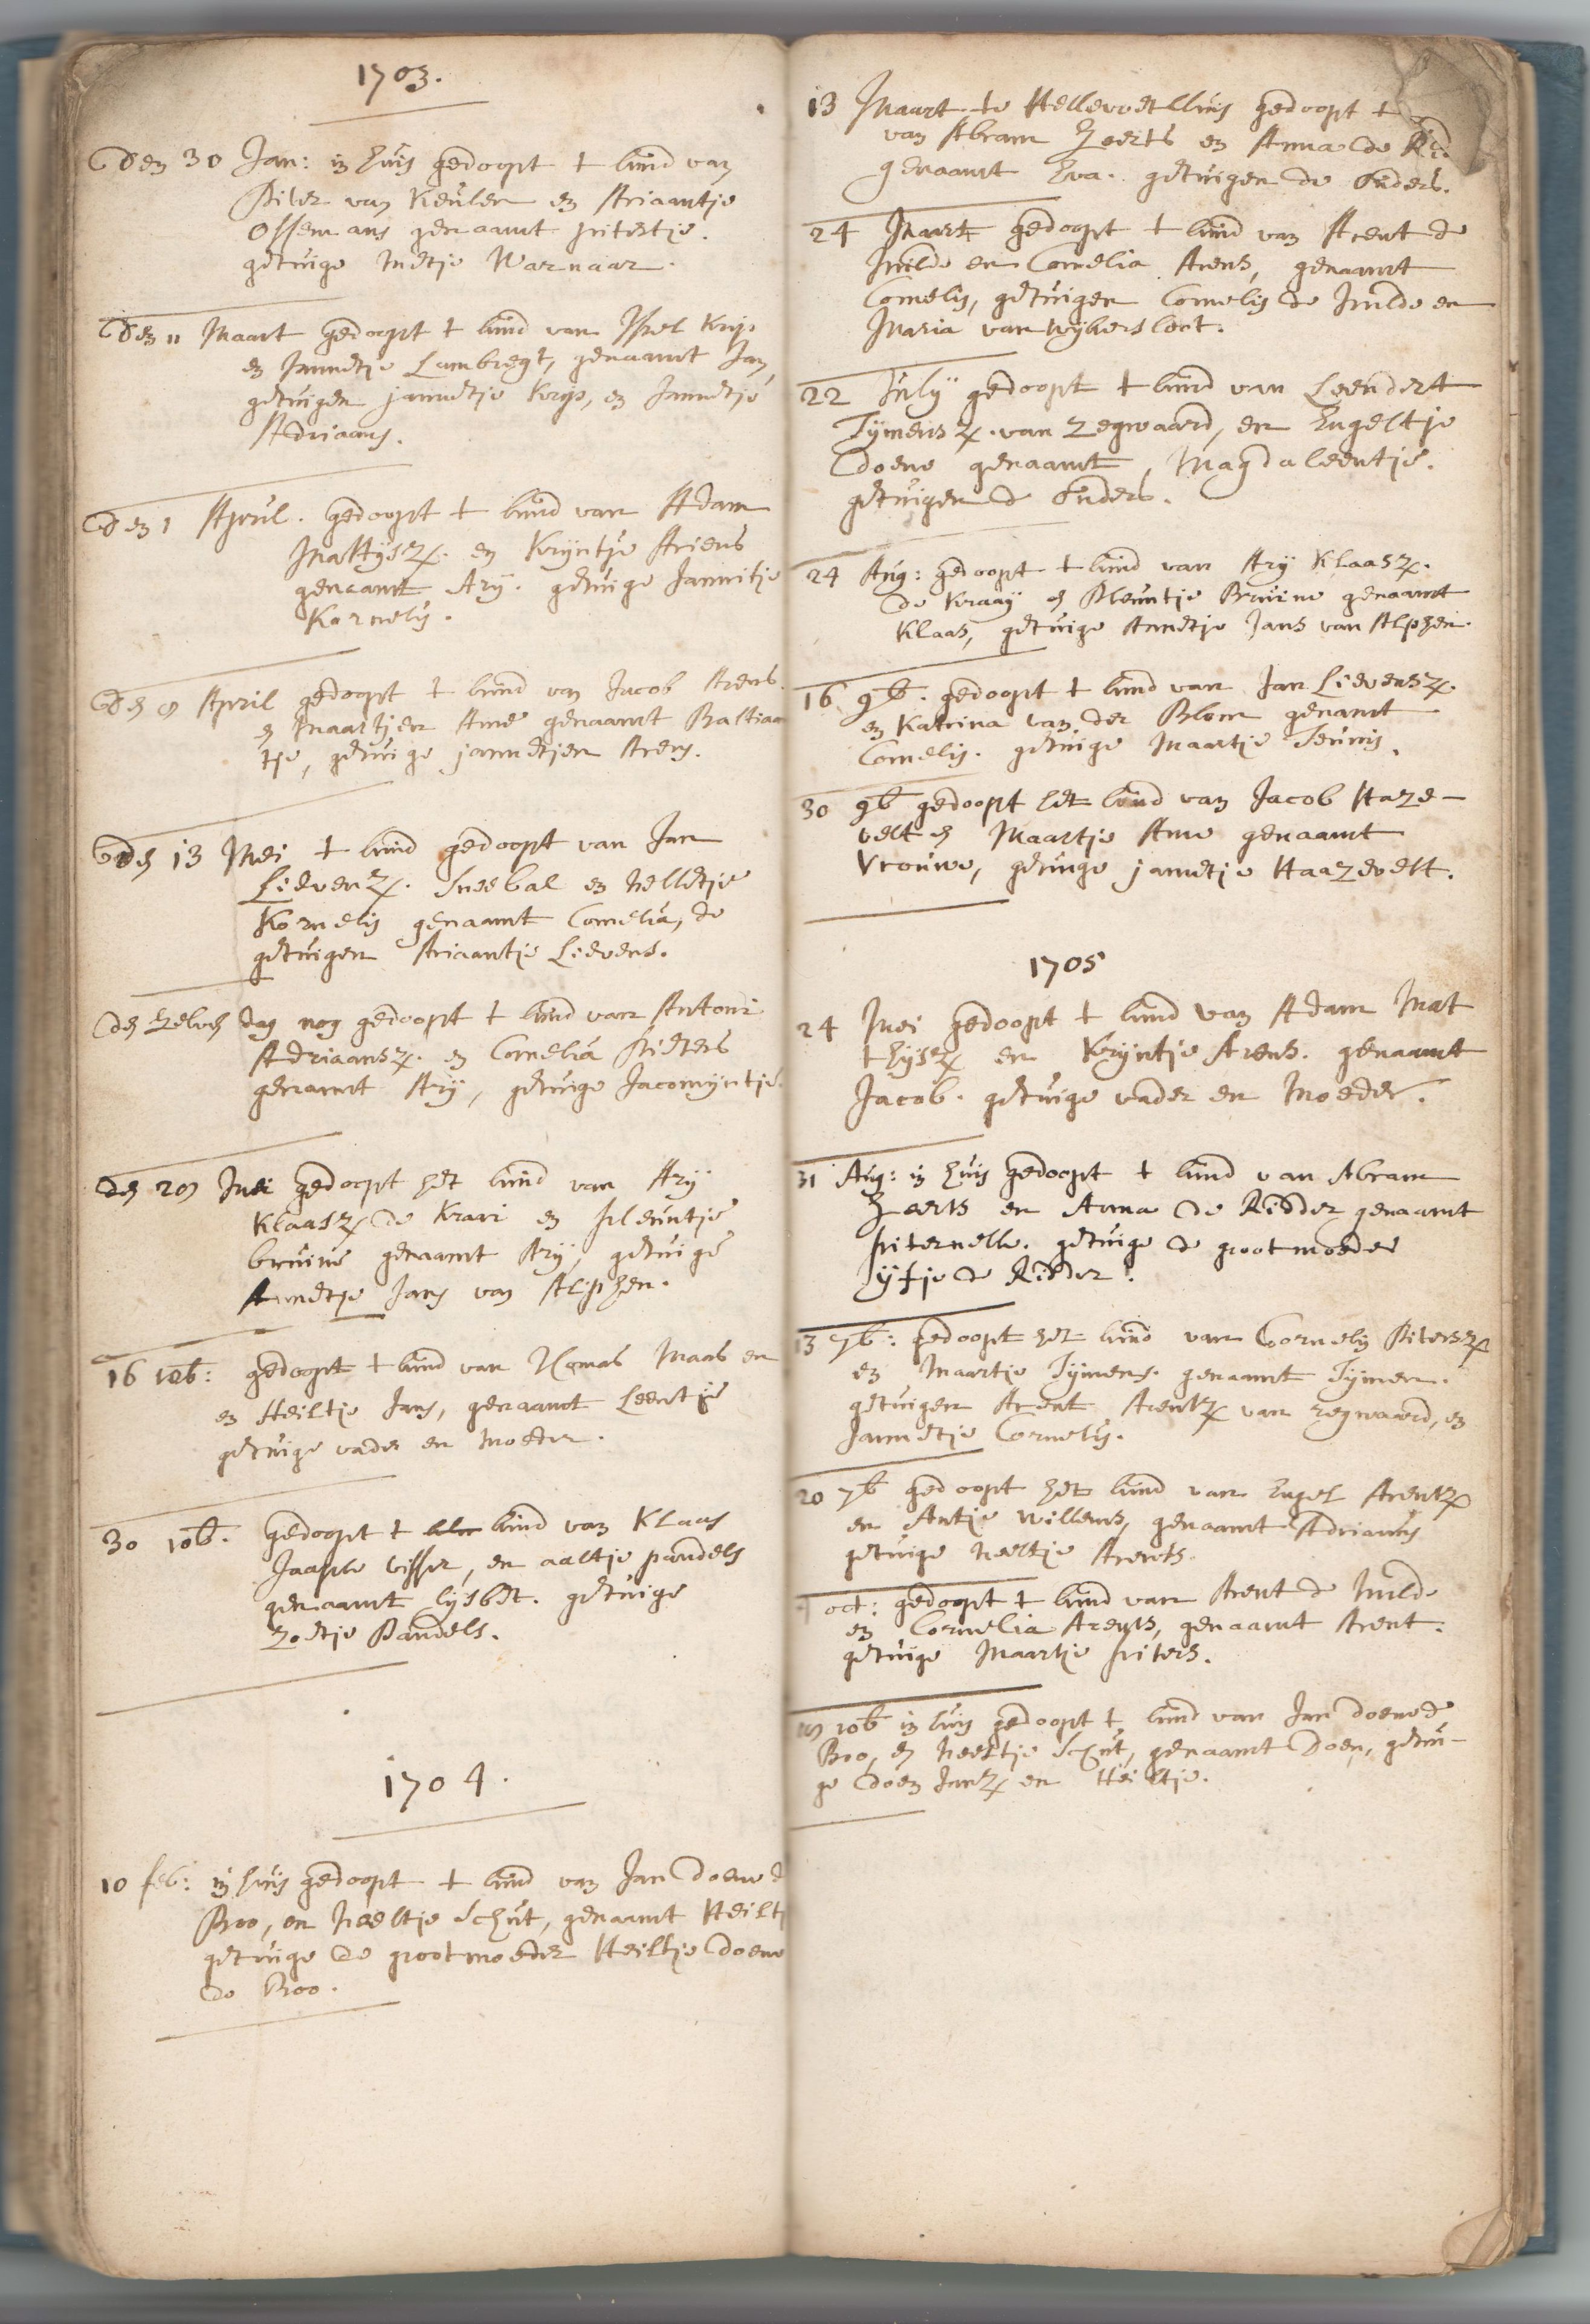 1703.
Den 30 Jan: in huis gedoopt t kind van
Piter van Keulen en Ariaantje
Ossemans genaamt pitertje.
getuige Metje Warnaar.
Den 11 Maart gedoopt t kind van Ysbel Kryp
en Jannetje Lambregt, genaamt Jan,
getuigen jannetje Kryp, en Jannetje
Adriaans.
Den 1 April. gedoopt t kind van Adam
Mattysz. en Kryntje Ariens
genaamt Ary. getuige Jannitje
Kornelis.
Den 9 April gedoopt t kind van Jacob Arens.
en Maartjen Ame genaamt Bastiaa
tje, getuige jannetjen Arens.
Den 13 Mei t kind gedoopt van Jan
Lievenz. Sneebal en Nelletje
Kornelis genaamt Cornelia, de
getuigen Ariaantje Lievens.
Den Zelven dag nog gedoopt t kind van Antoni
Adriaansz. en Cornelia Pieters
genaamt Ary, getuige Jacomyntje.
Den 29 Mei gedoopt het kind van Ary
Klaasz de Kraai en pleuntje
bruine genaamt Ary, getuige
Annetje Jans van Alphen.
16 10b: gedoopt t kind van Thomas Maas en
en Heiltje Jans, genaamt Leentje
getuige vader en moeder.
30 10b. gedoopt t kind van Klaas
Jaapse visser, en aaltje pandels
genaamt lysbet. getuige
Zoetje Pandels.
1704.
10 feb: in huis gedoopt t kind van Jan Doene d
Boo, en Neeltje Schut, genaamt Heiltj
getuige de grootmoeder Heiltje Doene
de Boo.
13 Maart te Hellevoetsluis gedoopt t
van Abram Zeerts en Anna de Rid
genaamt Eva. getuigen de Ouders.
24 Maart gedoopt t kind van Arent de
Milde en Cornelia Arens, genaamt
Cornelis, getuigen Cornelis de Milde en
Maria van Wykersloot.
22 July gedoopt t kind van Leendert
Tymensz. van Zegwaard, en Engeltje
Doene genaamt, Magdaleentje.
getuigen de Ouders.
24 Aug: gedoopt t kind van Ary Klaasz.
de Kraay en Pleuntje Bruine genaamt
Klaas, getuige Annetje Jans van Alphen.
16 9b. gedoopt t kind van Jan Lievensz.
en Katrina van der Blom genamt
Cornelis. getuige Maartje Teunis.
30 9b gedoopt het kind van Jacob Haze-
velt en Maartje Ame genaamt
Vrouwe, getuige jannetje Haazevelt.
1705
24 Mei gedoopt t kind van Adam Mat
thysz en Kryntje Arens. genaamt
Jacob. getuige vader en Moeder.
31 Aug: in huis gedoopt t kind van Abram
Zeerts en Anna de Ridder genaamt
piternelle. getuige de grootmoeder
Yfje de Ridder.
13 7b: gedoopt het kind van Cornelis Pitersz
en Maartje Tymens. genaamt Tymen.
getuigen Arent Arentz van Zegwaard, en
Jannetje Cornelis.
20 7b gedoopt het kind van Engel Arentz
en Antje Willems, genaamt Adrianus
getuige Neeltje Arents.
oct: gedoopt t kind van Arent de Milde
en Cornelia Arents, genaamt Arent.
getuige Maartje piters.
10b in huis gedoopt t kind van Jan Doene de
Boo, en Neeltje Schut, genaamt Doen, getui-
ge Doen Janz en Heiltje.